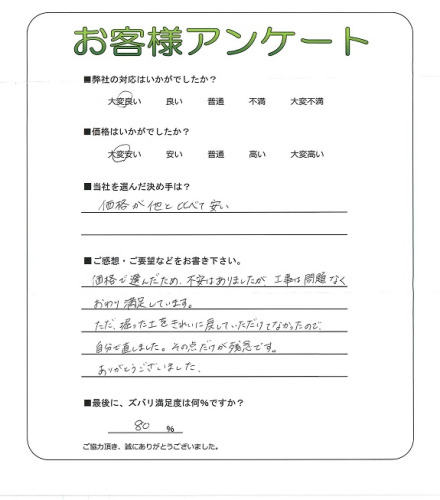 お客様アンケート
■弊社の対応はいかがでしたか？
大変良い 良い 普通 不満 大変不満
■価格はいかがでしたか？
大変安い 安い 普通 高い 大変高い
■当社を選んだ決め手は？
価格が他と比べて安い
■ご感想・ご要望などをお書き下さい。
価格で選んだため、不安はありましたが、工事は問題なく
おわり満足しています。
ただ、掘った土をきれいに戻していただけてなかったので、
自分で直しました。その点だけが残念です。
ありがとうございました。
■最後に、ズバリ満足度は何％ですか？
80 %
ご協力頂き、誠にありがとうございました。